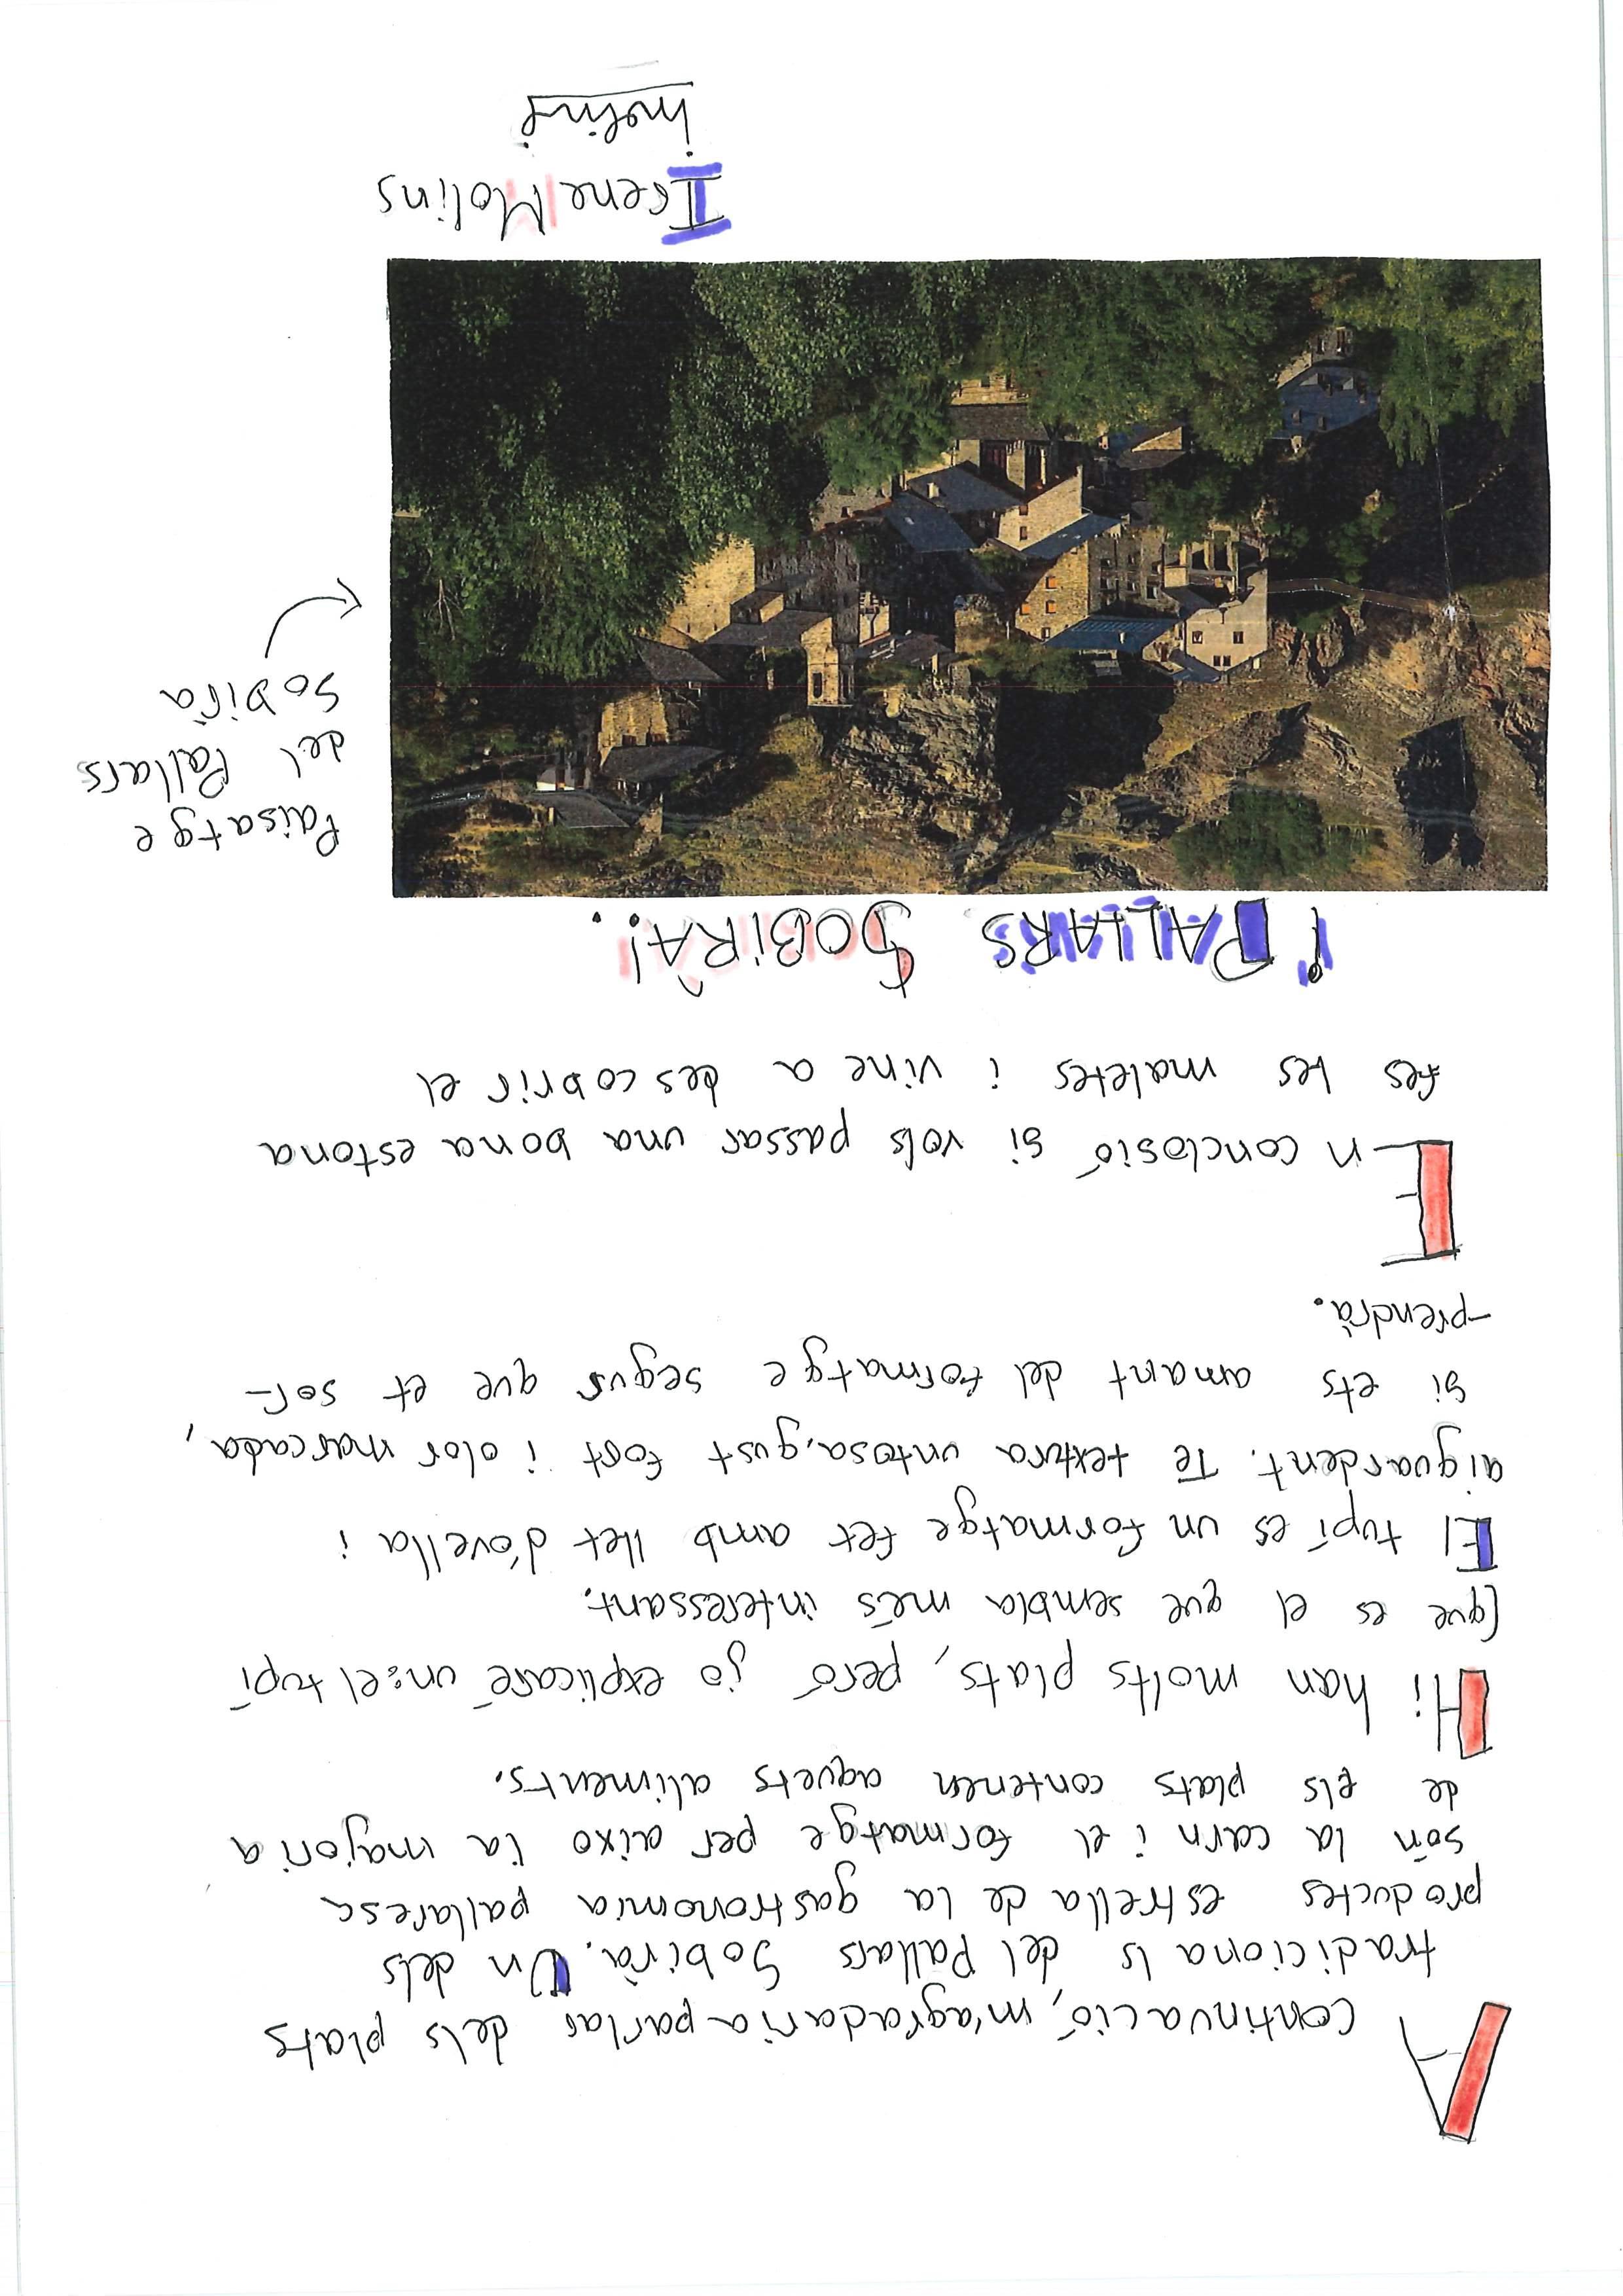 A continuació, m'agradaria parlar dels plats
tradicionals del Pallars Sobirà. Un dels
productes estrella de la gastronomia pallaresa
són la carn i el formatge per aixo la majoria
de els plats contenen aquets aliments.
Hi han molts plats, però jo explicaré un: el tupí
(que es el que sembla més interessant.
El tupí es un formatge fet amb llet d'ovella i
aiguardent. Te textura untosa, gust fort i olor marcada,
si ets amant del formatge segur que et sor-
-prendrà.
En conclosió si vols passar una bona estona
fes les maletes i vine a descobrir el
PALLARS SOBIRÀ!
Paisatge
del Pallars
Sobirà
Irene Molins